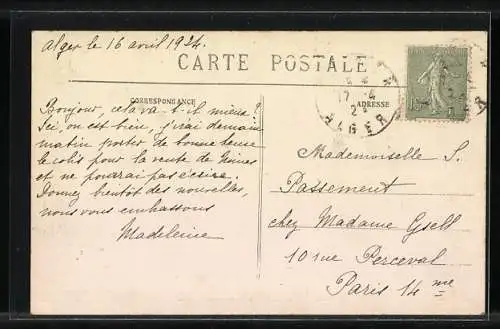 Alger le 16 avril 1924.
CARTE POSTALE
CORRESPONDANCE
ADRESSE
17 -4
ALGER
Bonjour, cela va-t-il mieux?
Ici, on est bien, j'irai demain
matin porter de bonne heure
le colis pour la vente de
et ne pourrai pas écrire.
Donnez bientôt des nouvelles,
nous vous embrassons
Madeleine
Mademoiselle S.
Passement
chez Madame Gsell
10 rue Perceval
Paris 14 me